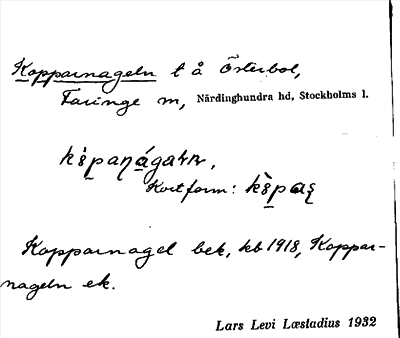 Kopparnageln t å Österbol,
Faringe sn, Närdinghundra hd, Stockholms l.
Kort form:
Kopparnagel bek, kb 1918, Koppar-
nageln ek.
Lars Levi Læstadius 1932